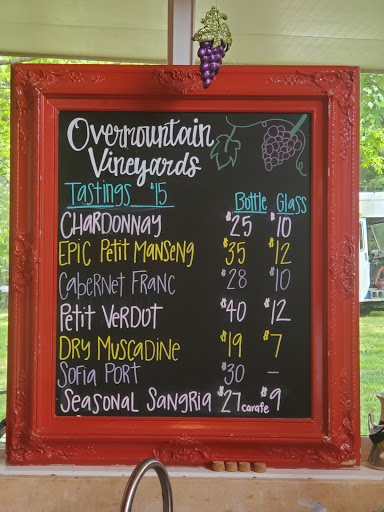 Overmountain
Vineyards
Tastings $15
Bottle Glass
CHARDONNAY $25 $10
EPIC PETIT MANSENG $35 $12
CABERNET FRANC $28 $10
PETIT VERDOT $40 $12
DRY MUSCADINE $19 $7
SOFIA PORT $30 –
SEASONAL SANGRIA $27 carafe $9